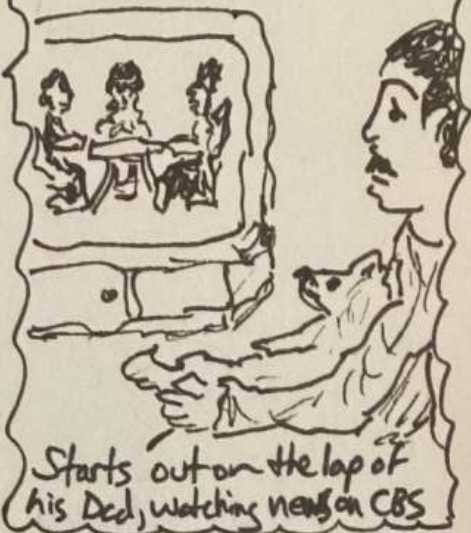 Starts out on the lap of
his Dad, watching news on CBS